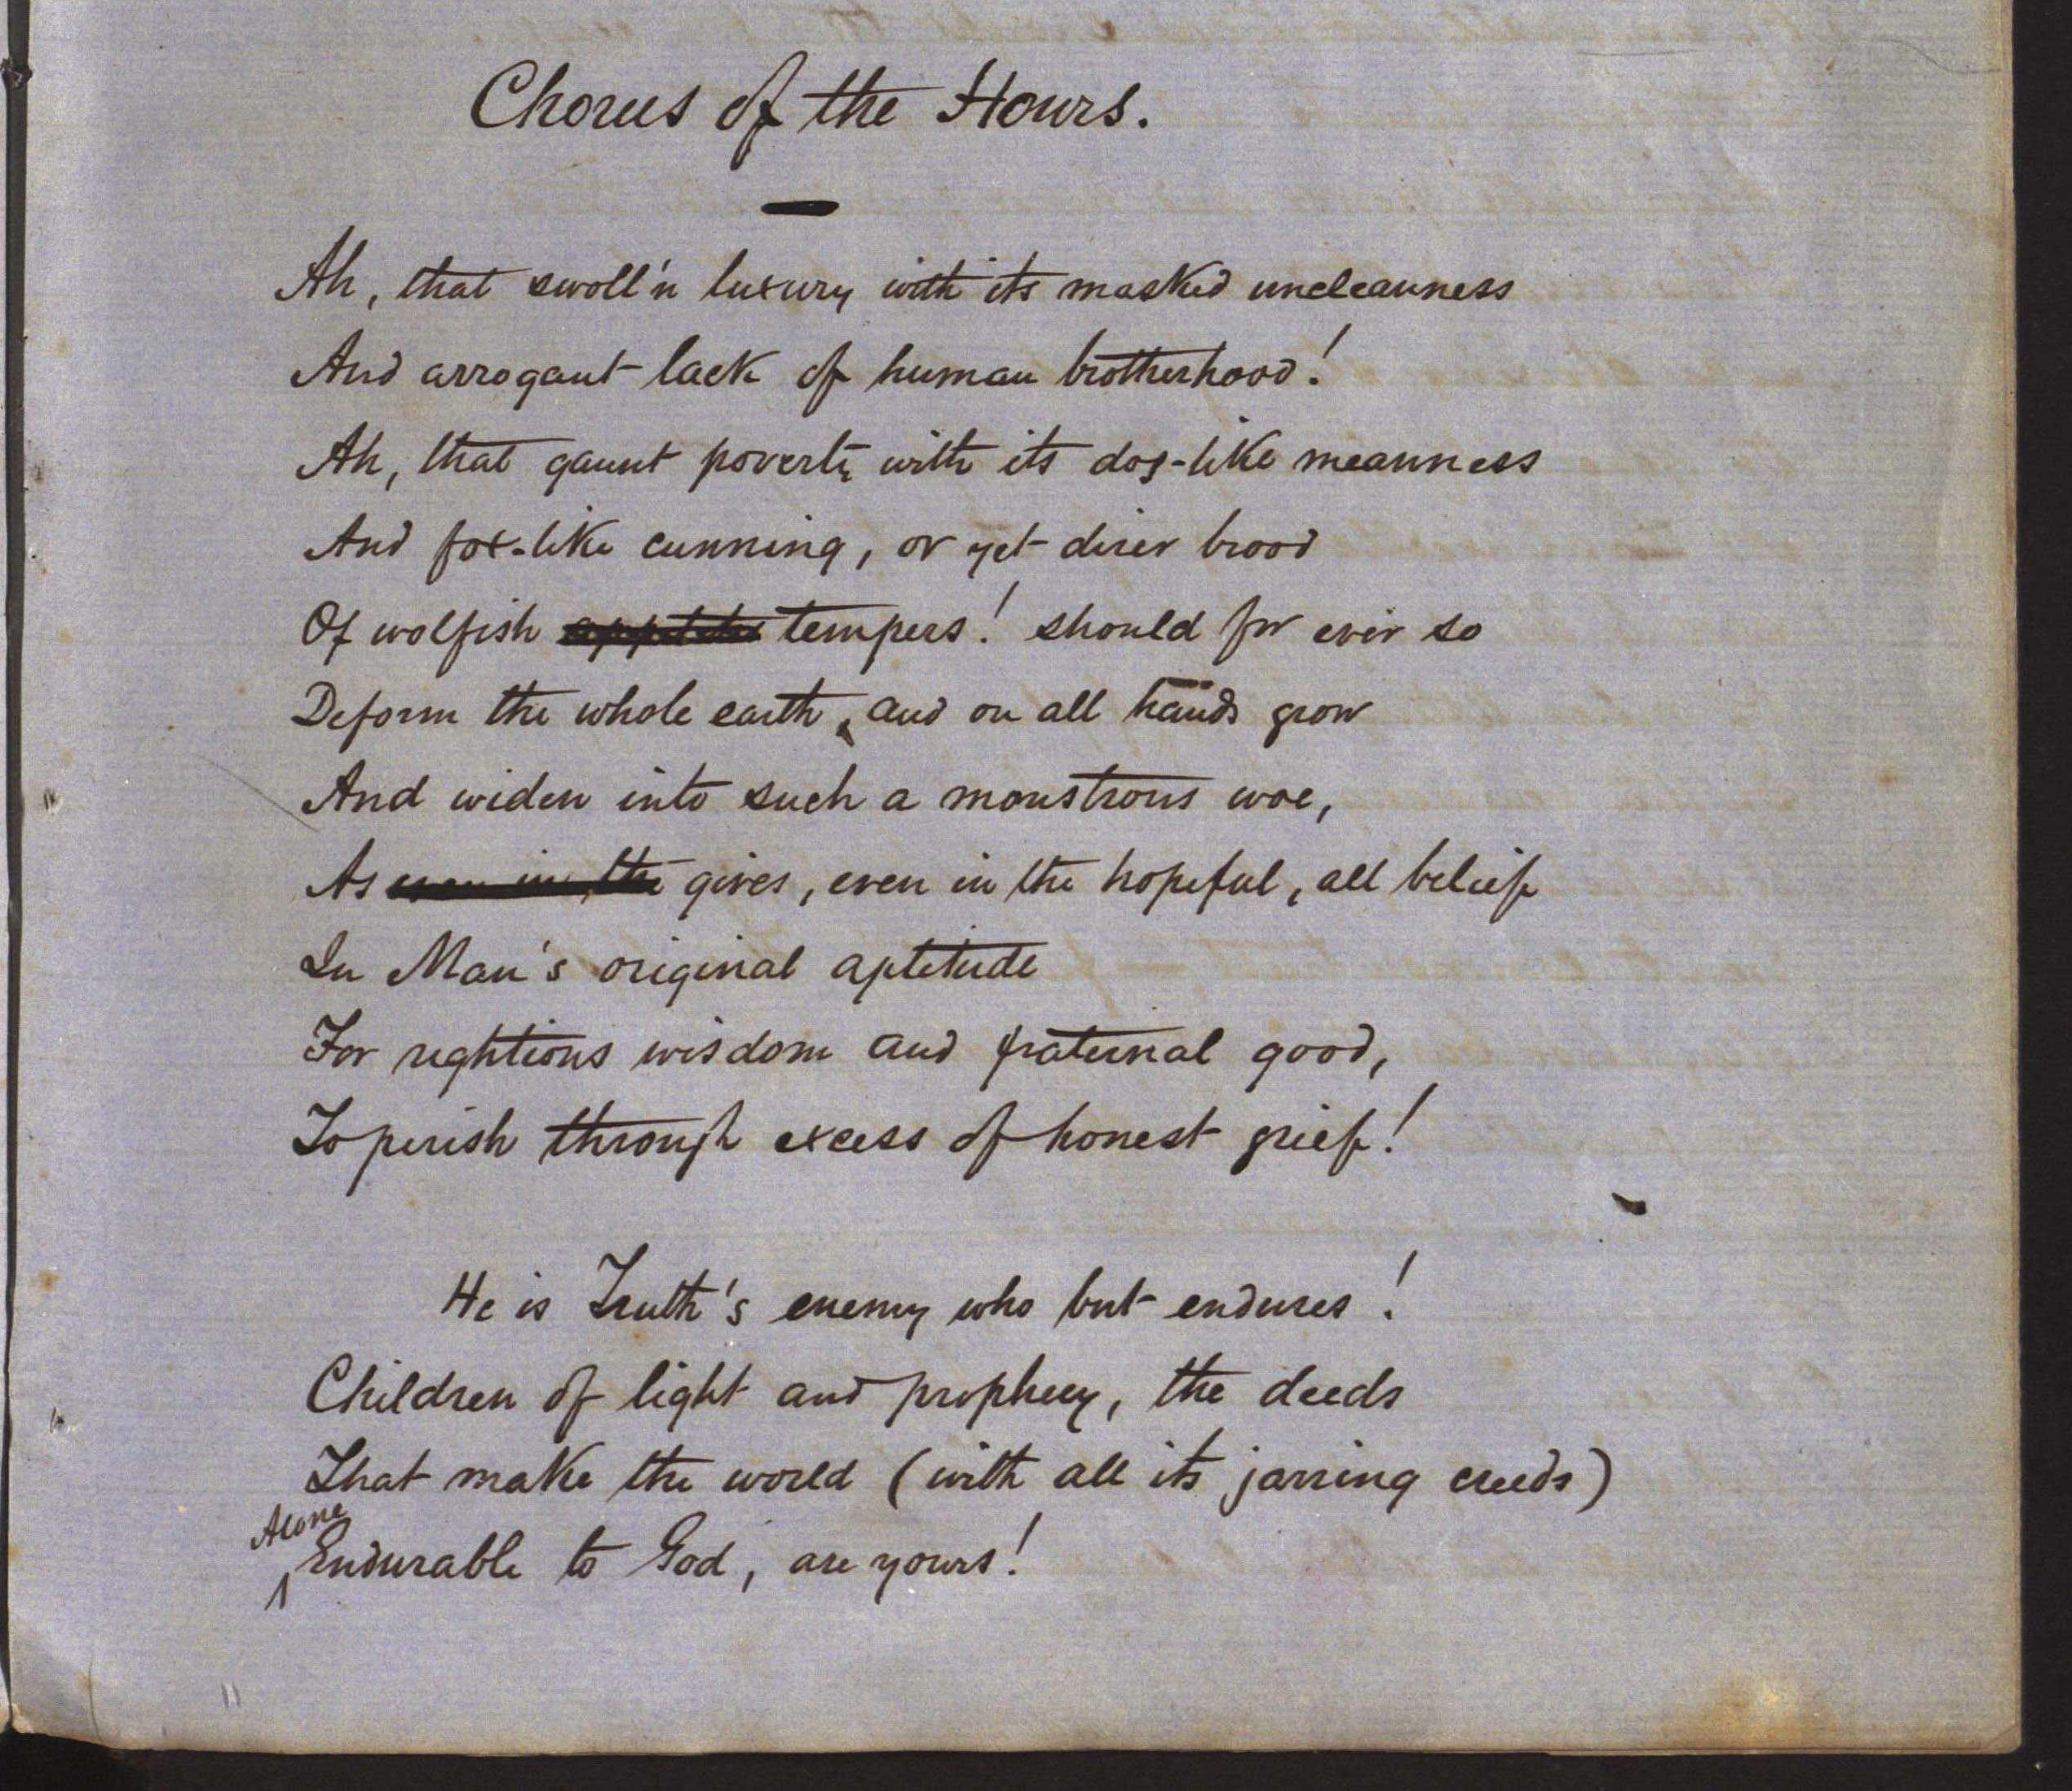 Chorus of the Hours.
Ah, that swoll'n luxury with its masked uncleanness
And arrogant lack of human brotherhood!
Ah, that gaunt poverty with its dog-like meanness
And fox-like cunning, or yet direr brood
Of wolfish appetites tempers! should for ever so
Deform the whole earth, and on all hands grow
And widen into such a monstrous woe,
As even in the gives, even in the hopeful, all belief
In Man's original aptitude
For rightious wisdom and fraternal good,
To perish through excess of honest grief!
He is Truth's enemy who but endures!
Children of light and prophecy, the deeds
That make the world (with all its jarring creeds)
Alone
Endurable to God, are yours!